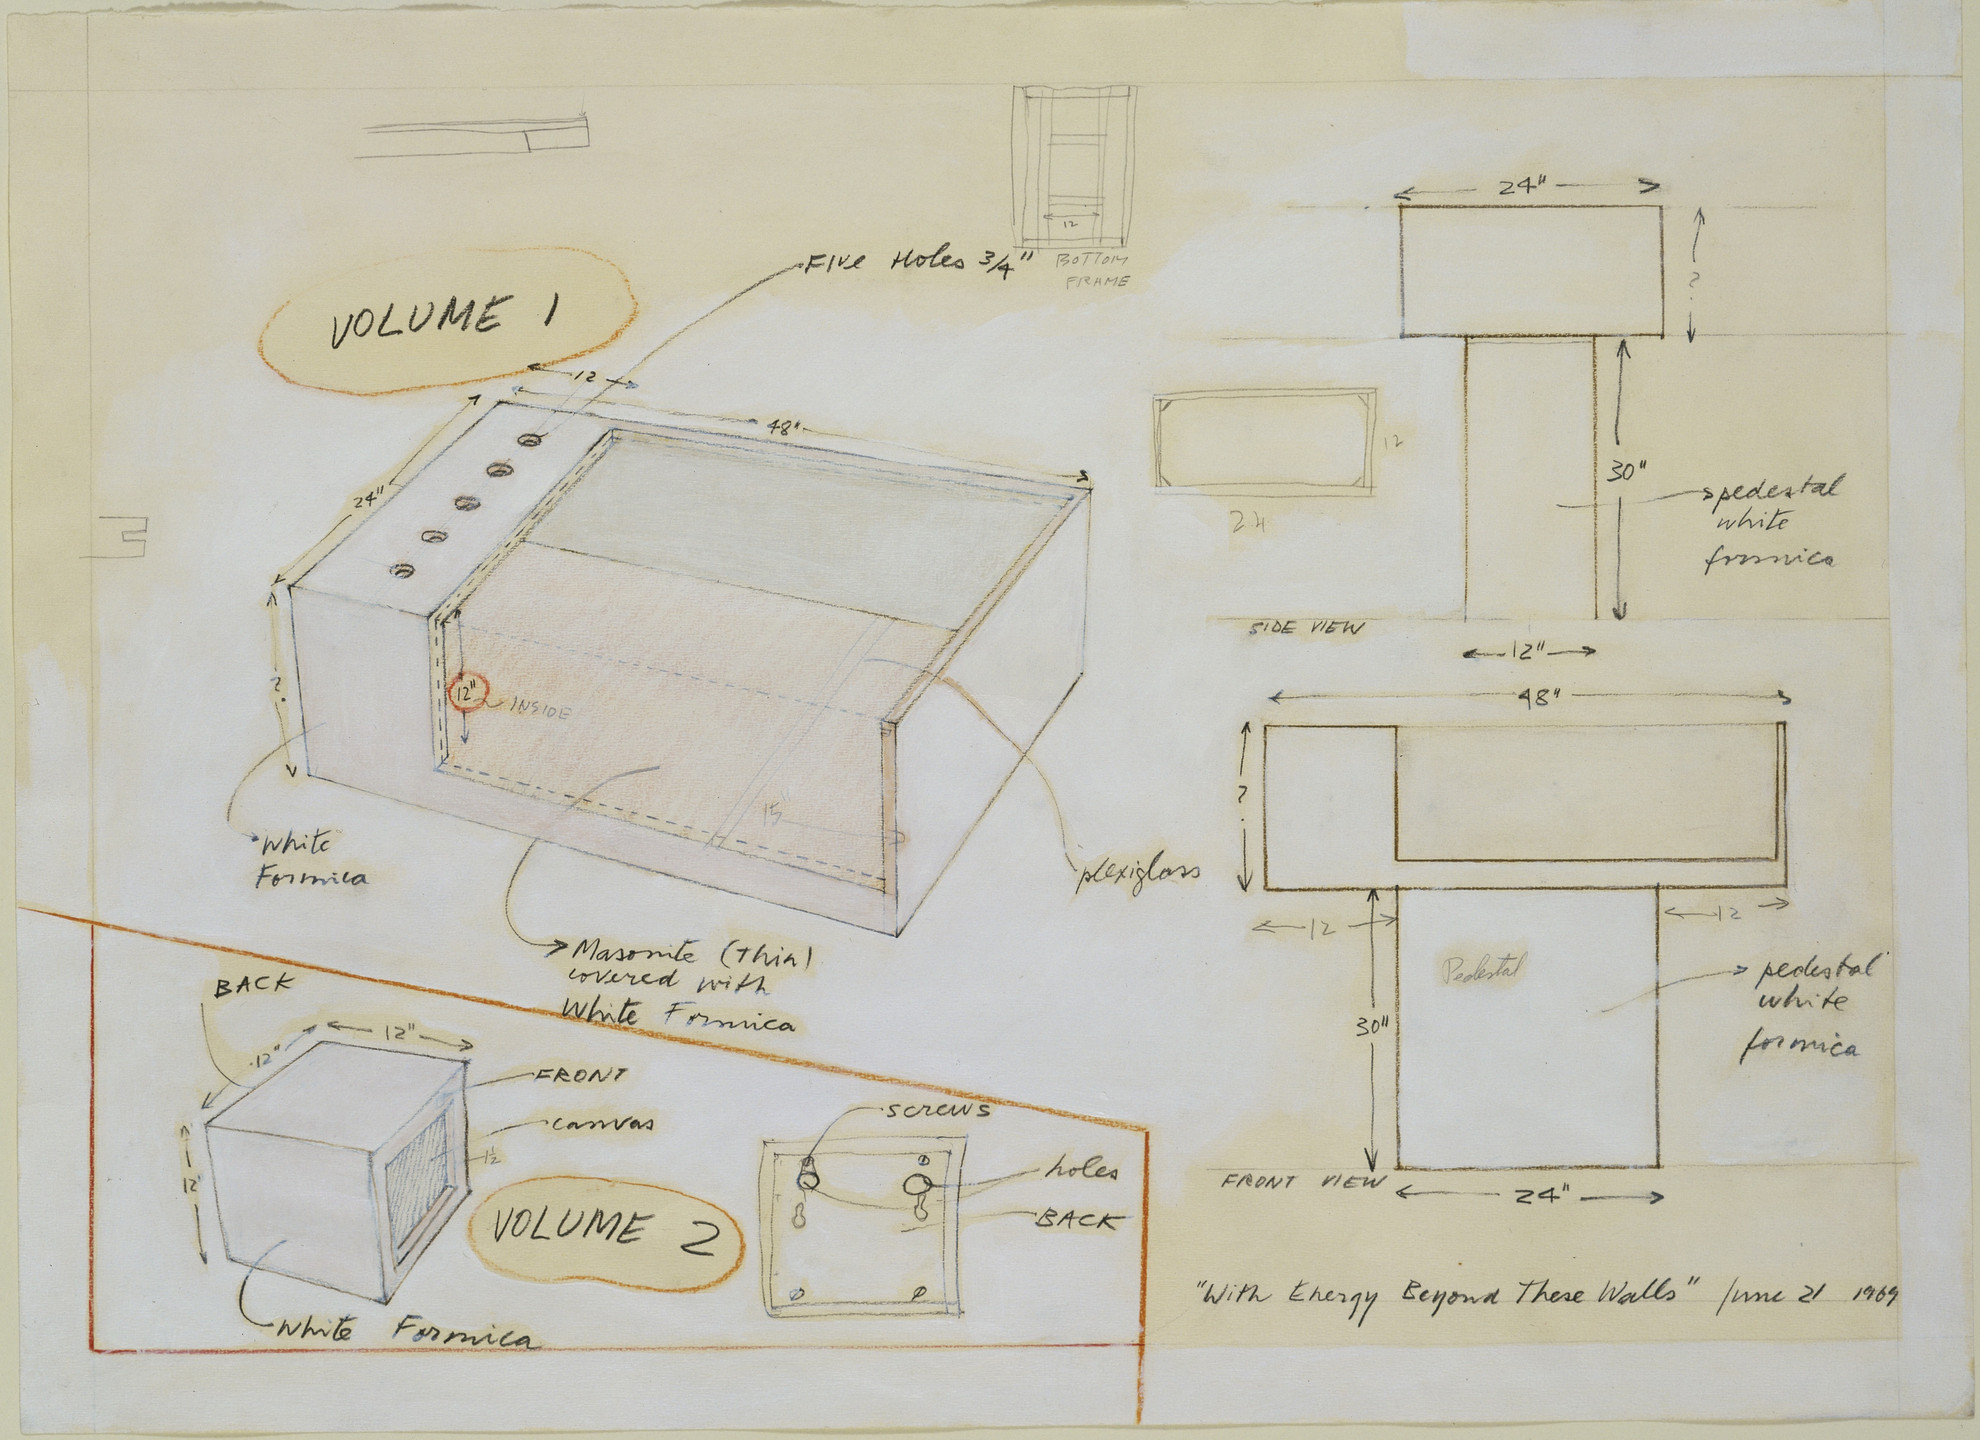 VOLUME 1
Five Holes 3/4"
12
BOTTOM
FRAME
12
48"
24"
?
12"
INSIDE
15"
White
Formica
plexiglass
Masonite (Thin)
covered with
White Formica
24"
?
12
24
30"
pedestal
white
formica
SIDE VIEW
12"
48"
?
12
12
Pedestal
30"
pedestal
white
formica
FRONT VIEW
24"
BACK
12"
12"
FRONT
canvas
1½
12"
VOLUME 2
White Formica
screws
holes
BACK
"With Energy Beyond These Walls" June 21 1969